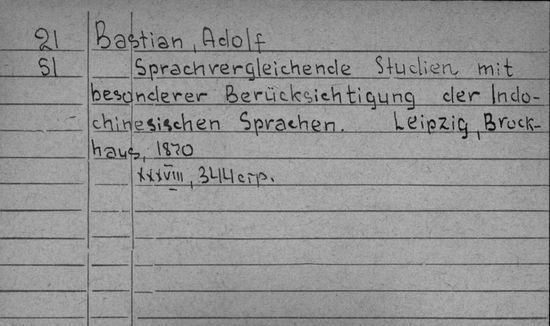 21 Bastian, Adolf
S1 Sprachvergleichende Studien mit
besonderer Berücksichtigung der Indo-
chinesischen Sprachen. Leipzig, Brock-
haus, 1870
XXXVIII, 344 стр.